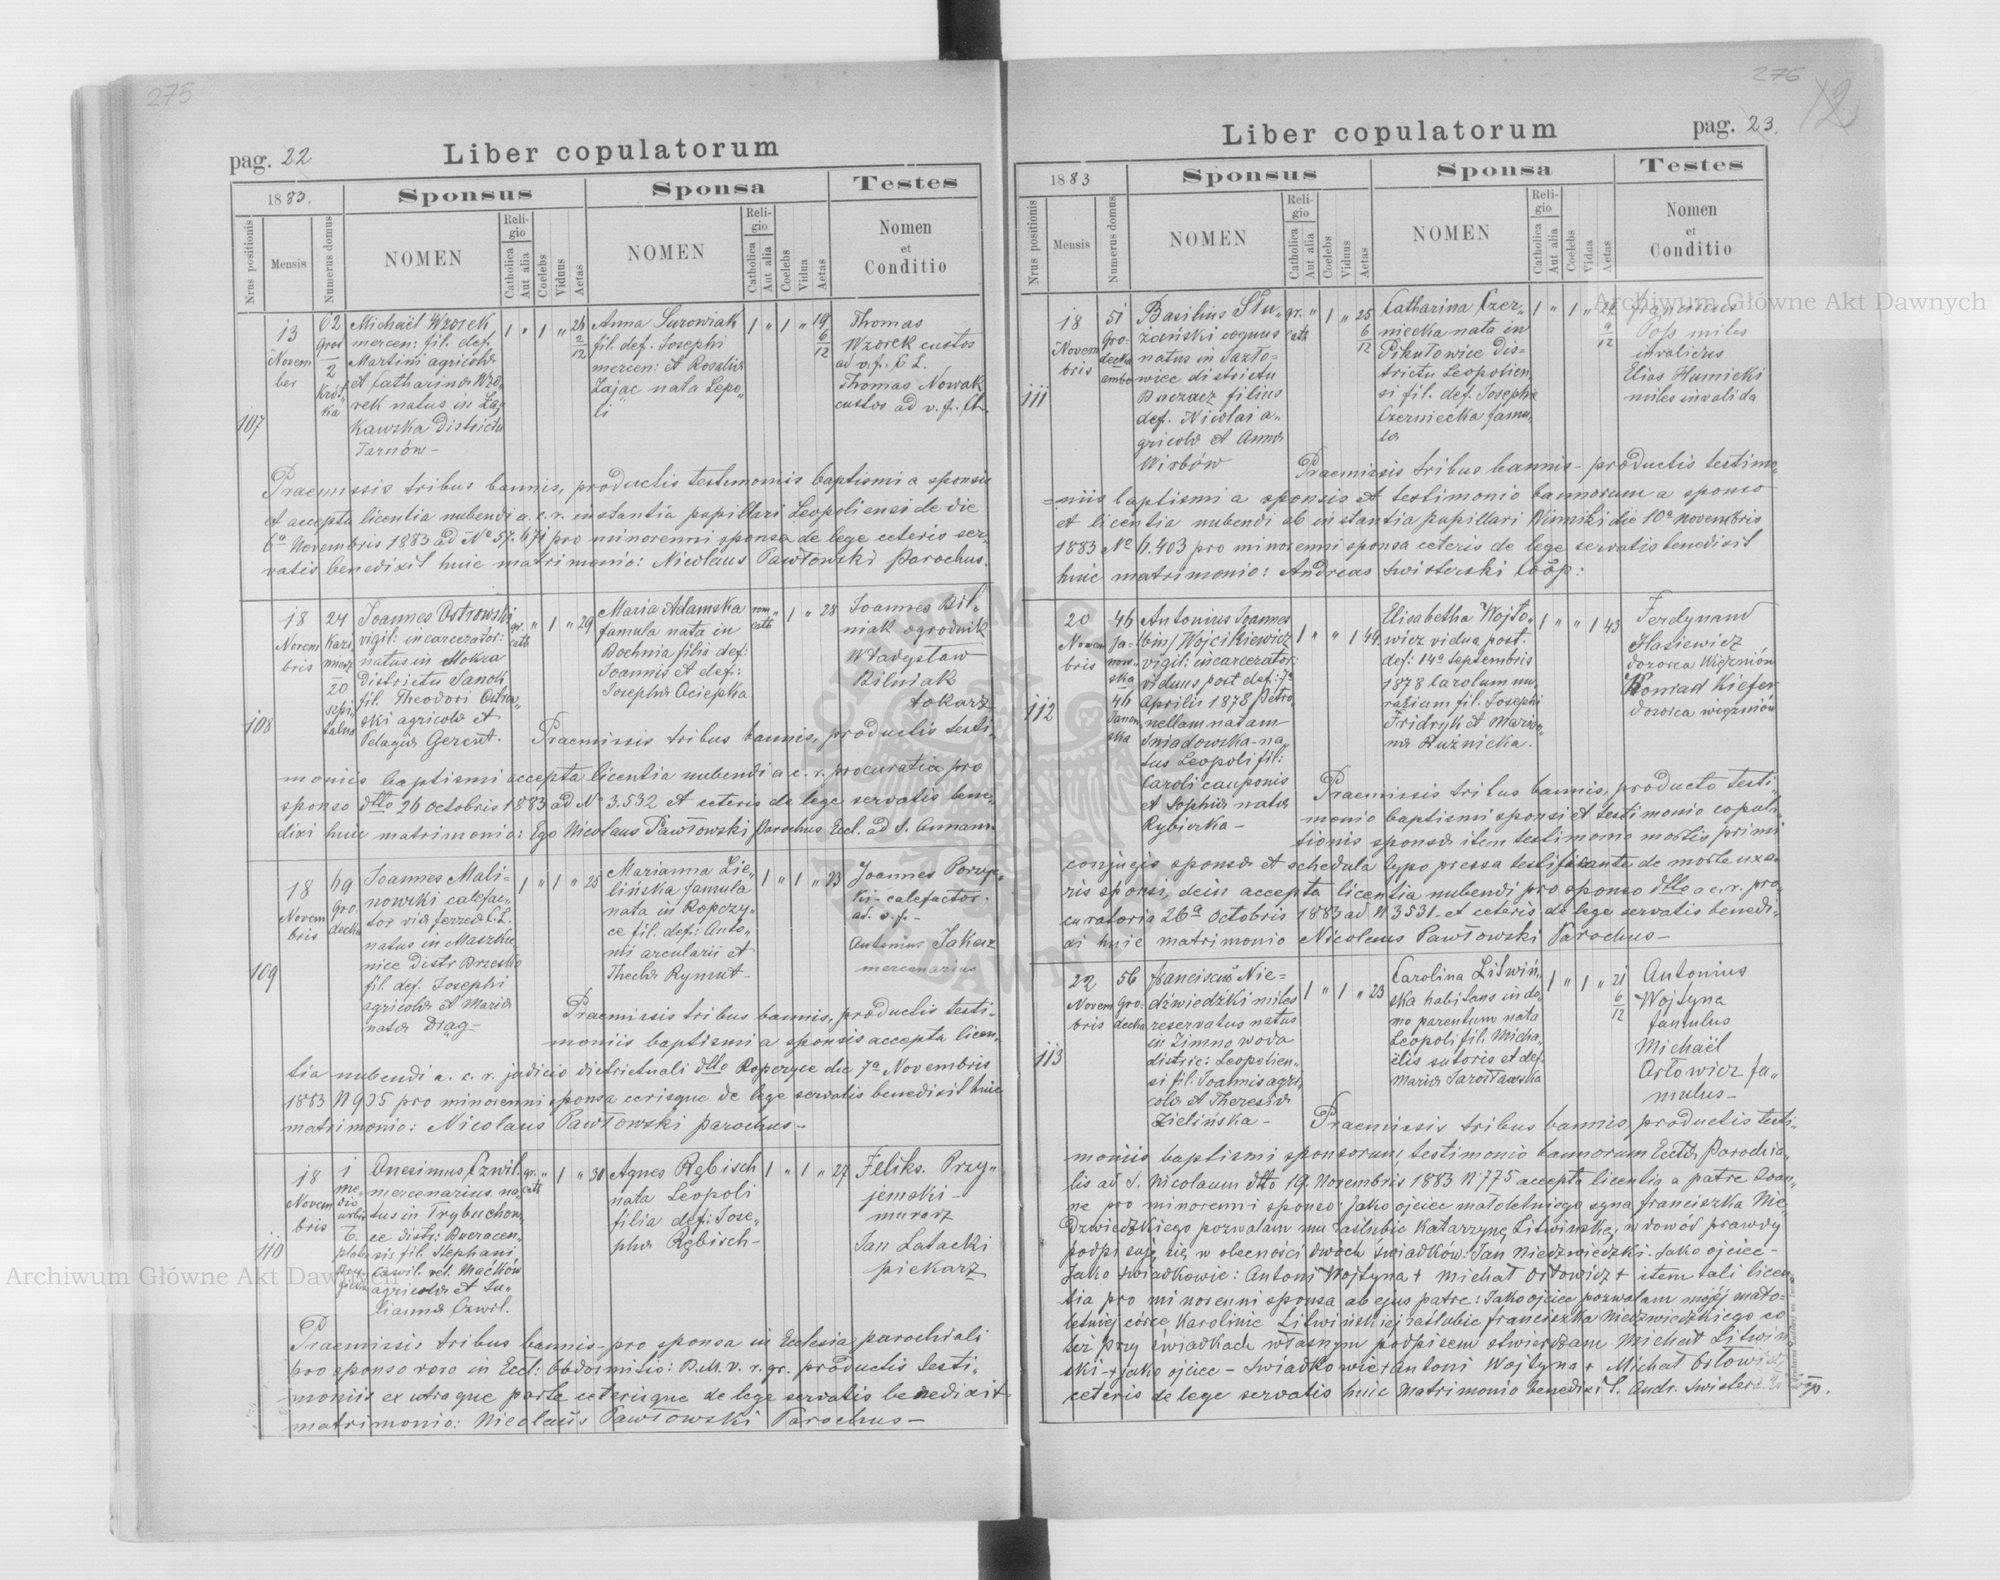 275
pag. 22
Liber copulatorum
1883.
Sponsus
Sponsa
Testes
Nrus positionis
Mensis
Numerus domus
NOMEN
Religio
Catholica
Aut alia
Coelebs
Viduus
Aetas
NOMEN
Religio
Catholica
Aut alia
Coelebs
Vidua
Aetas
Nomen
et
Conditio
107
13
Novem
ber
62
Grod
2
Krót-
ka
Michaël Wzorek
mercen: fil. def.
Martini agricolæ
et Catharinæ Wzo-
rek natus in
kawska Districtu
Tarnów-
1 " 1 " 26 2/12
Anna Surowiak
fil. def. Josephi
mercen: et Rosaliæ
Zając nata Lepo-
li
1 " 1 " 19 6/12
Thomas
Wzorek custos
ad v. f. C. L.
Thomas Nowak
custos ad v. f.
Praemissis tribus bannis, productis testimoniis baptismi a sponsis
et accepta licentia nubendi a. c. r. instantia pupillari Leopoliensi de die
6a Novembris 1883 ad No 57.471 pro minorenni sponsa de lege ceteris ser-
vatis benedixit huic matrimonio: Nicolaus Pawłowski Parochus.
108
18
Novem
bris
24
Kazi
mierz
20
sepi-
talna
Joannes Ostrowski
vigil: incarcerator:
natus in Mokra
Districtu Sanok
fil. Theodori Ostro-
ski agricolæ et
Pelagiæ Gerent.
gr.
cath
" 1 " 29
Maria Adamska
famula nata in
Bochnia filia def:
Joannis et def:
Josephæ Ociepka
rom
cath
" 1 " 28
Joannes Bil-
niak ogrodnik
Władysław
Bilniak
tokarz
Praemissis tribus bannis, productis testi-
moniis baptismi accepta licentia nubendi a c. r. procuratia pro
sponso dtto 26 octobris 1883 ad No 3.532 et ceteris de lege servatis bene-
dixi huic matrimonio: Ego Nicolaus Pawłowski Parochus Eccl. ad S. Annam.
109
18
Novem
bris
69
Gro
decka
Joannes Mali-
nowski calefac-
tor viæ ferreæ C. L.
natus in Maszkie-
nice Distr Brzesko
fil. def. Josephi
agricolæ et Mariæ
natæ Drąg-
1 " 1 " 25
Marianna Zie-
lińska famula
nata in Ropczy-
ce fil. def: Anto-
nii arcularii et
Theclæ Rymut-
1 " 1 " 23
Joannes Porzyc-
ki-calefactor.
ad. v. f.-
Antonius Jakarz
mercenarius
Praemissis tribus bannis, productis testi-
moniis baptismi a sponsis accepta licen-
tia nubendi a. c. r. judicio districtuali dtto Ropczyce die 7a Novembris
1883 N 905 pro minorenni sponsa cerisque de lege servatis benedixit huic
matrimonio: Nicolaus Pawłowski Parochus-
110
18
Novem
bris
1
me-
dio
Onesimus Czwil.
mercenarius na-
tus in Trybuchow-
ce distr: Buczacen-
sis fil. Stephani
Czwil. vel. Maćków
agricolæ et Ju-
liannæ Czwil.
gr.
cath
" 1 " 30
Agnes Rębisch
nata Leopoli
filia def: Jose-
phæ Rębisch-
1 " 1 " 27
Feliks Przy-
jemski-
murarz
Jan Łatacki
piekarz
Praemissis tribus bannis-pro sponsa in Ecclesia parochiali
pro sponso vero in Eccl: Obdormitio: B. M. V. r. gr. productis testi-
moniis ex utraque parte ceterisque de lege servatis benedixit
matrimonio: Nicolaus Pawłowski Parochus-
276
12
pag. 23.
Liber copulatorum
1883
Sponsus
Sponsa
Testes
Nrus positionis
Mensis
Numerus domus
NOMEN
Religio
Catholica
Aut alia
Coelebs
Viduus
Aetas
NOMEN
Religio
Catholica
Aut alia
Coelebs
Vidua
Aetas
Nomen
et
Conditio
111
18
Novem
bris
51
Gro-
decka
ambo
Basilius Słu-
żański coquus
natus in Jazło-
wiec districtu
Buczacz filius
def. Nicolai a-
gricolæ et Annæ
Wirbów
gr.
cath
" 1 " 25 6/12
Catharina Czer-
niecka nata in
Pikułowice Dis-
trictu Leopolien
si fil. def. Josephæ
Czerniecka famu-
læ
1 " 1 " 22 9/12
Franciscus
Poss miles
invalidus
Elias Humicki
miles invalida
Praemissis tribus bannis-productis testimo-
=niis baptismi a sponsis et testimonio bannorum a sponso
et licentia nubendi ab instantia pupillari Winniki die 10a novembris
1883 No 6.403 pro minorenni sponsa ceteris de lege servatis benedixit
huic matrimonio: Andreas Swisterski Coop:
112
20
Novem
bris
46
Ja-
now-
ska
46
Janow
ska
Antonius Joannes
bin/ Wojcikiewicz
vigil: incarcerator:
viduus post def: 7a
Aprilis 1878 Petro
nellam natam
Sniadowska-na-
tus Leopoli fil:
Caroli cauponis
et Sophiæ natæ
Rybicka-
1 " " 1 44
Elisabetha Wojto-
wicz vidua post.
def: 14a Septembris
1878 Carolum mu-
rarium fil. Josephi
Fridryk et Maria-
næ Ruźnicka.
1 " " 1 43
Ferdynand
Hasiewicz
dozorca Więzniów
Konrad Kiefer
dozorca więzniów
Praemissis tribus bannis, producto testi-
monio baptismi sponsi et testimonio copula-
tionis sponsæ item testimonio mortis primi
conjugis sponsæ et schedula typo pressa testificanta de morte uxo-
ris sponsi, dein accepta licentia nubendi pro sponso dtto a c. r. pro-
curatoria 26a octobris 1883 ad N 3531. et ceteris de lege servatis benedi-
xi huic matrimonio Nicolaus Pawłowski Parochus-
113
22
Novem
bris
56
Gro-
decka
Franciscus Nie-
dźwiedzki miles
reservatus natus
in Zimno woda
distric: Leopolien-
si fil. Joannis agri-
colæ et Theresiæ
Zielińska-
1 " 1 " 23
Carolina Litwiń-
ska habitans in do-
mo parentum nata
Leopoli fil. Micha-
ëlis sutoris et def.
Mariæ Jarosławska
1 " 1 " 21 6/12
Antonius
Wojtyna
famulus
Michaël
Orłowicz fa-
mulus-
Praemissis tribus bannis, productis testi-
moniis baptismi sponsorum, testimonio bannorum Ecclæ Parochia-
lis ad S. Nicolaum dtto 19. Novembris 1883 N 775 accepta licentia a patre Joan-
ne pro minorenni sponso: Jako ojciec małoletniego syna Franciszka Nie-
dzwiedzkiego pozwalam mu zaślubic Katarzynę Litwińską, w dowód prawdy
podpisuję się w obecności dwóch świadków: Jan Niedzwiedzki. Jako ojciec-
Jako świadkowie: Antoni Wojtyna + Michał Orłowicz + item tali licen-
tia pro minorenni sponsa ab ejus patre: Jako ojciec pozwalam mojej mało-
letniej córce Karolinie Litwińskiej zaślubic Franciszka Niedzwiedzkiego co
też przy świadkach własnym podpisem stwierdzam Michał Litwin
ski-+ jako ojciec- Swiadkowie + Antoni Wojtyna + Michał Orłowicz
ceteris de lege servatis huic matrimonio benedixit. Andr. Swisterski
Archiwum Główne Akt Dawnych
Archiwum Główne Akt Dawnych